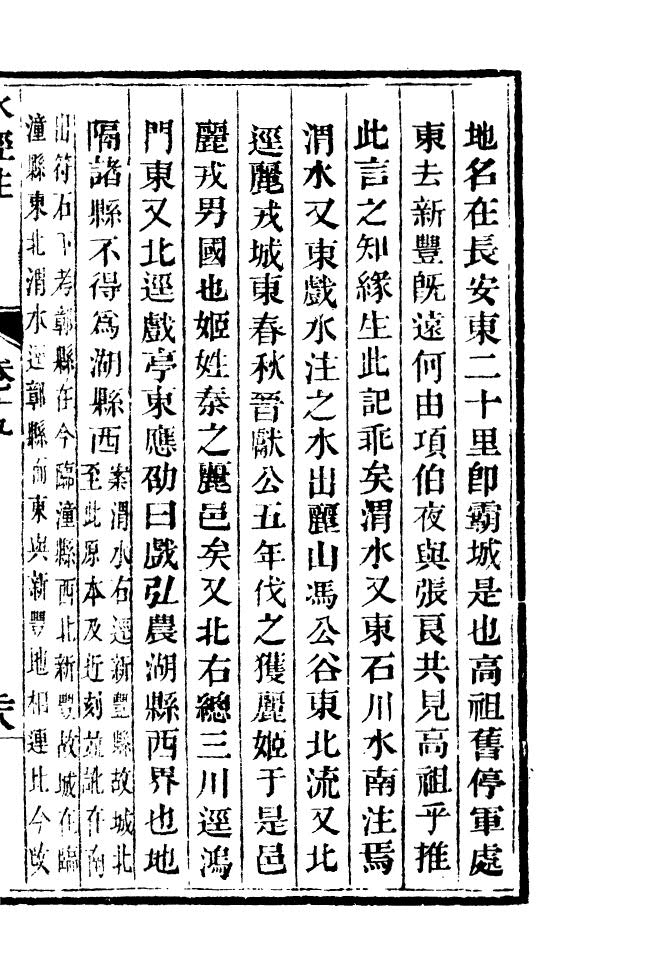 地名在長安東二十里卽霸城是也高祖舊停軍處
東去新豐旣遠何由項伯夜與張良共見高祖乎推
此言之知緣生此記乖矣渭水又東石川水南注焉
渭水又東戲水注之水出麗山馮公谷東北流又北
逕麗戎城東春秋晉獻公五年伐之獲麗姬于是邑
麗戎男國也姬姓秦之麗邑矣又北右總三川逕鴻
門東又北逕戲亭東應劭曰戲弘農湖縣西界也地
隔諸縣不得爲湖縣西
案渭水右逕新豐縣故城北
至此原本及近刻並訛在南
出符石下考鄣縣在今臨潼縣西北新豐故城在臨
潼縣東北渭水逕鄣縣而東與新豐地相連比今改
水經注
卷十九
六